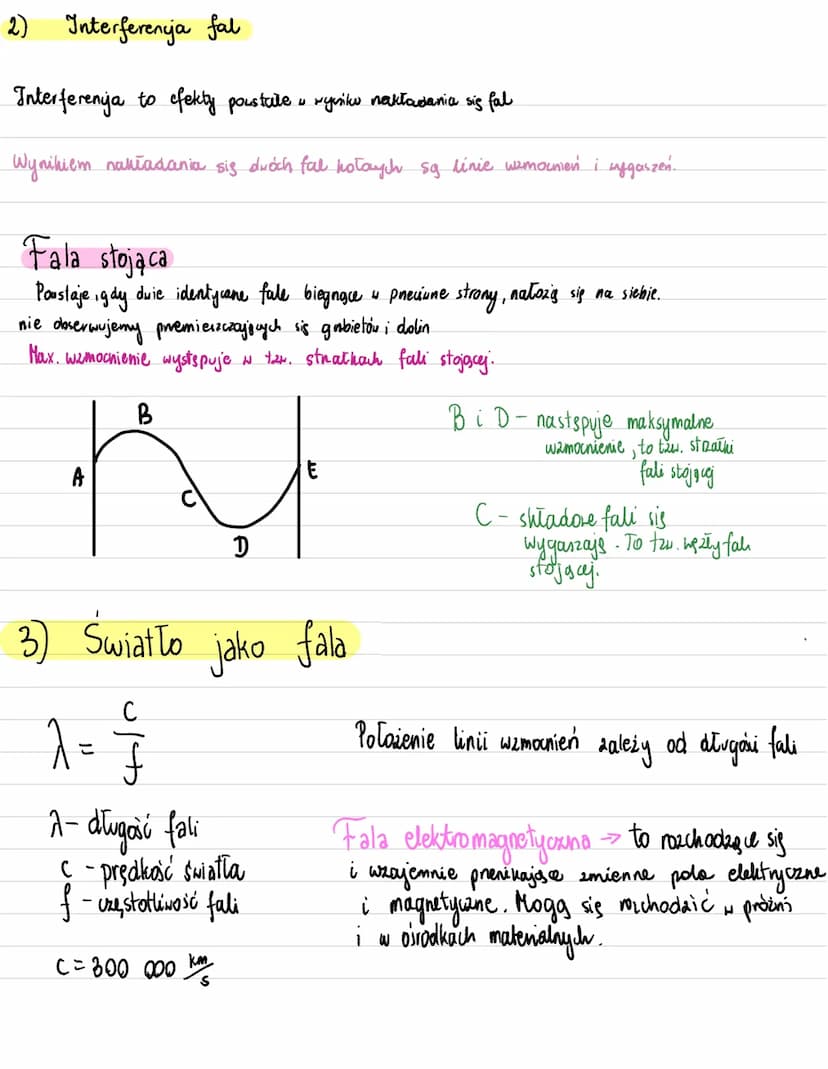 2) Interferencja fal
Interferencja to efekty powstałe w wyniku nakładania się fal
Wynikiem nakładania się dwóch fal kołowych są linie wzmocnień i wygaszeń.
Fala stojąca
Powstaje, gdy dwie identyczne fale biegnące w przeciwne strony, nałożą się na siebie.
nie obserwujemy przemieszczających się grzbietów i dolin
Max. wzmocnienie występuje w tzw. strzałkach fali stojącej.
B
A
C
D
E
B i D - następuje maksymalne
wzmocnienie, to tzw. strzałki
fali stojącej
C - składowe fali się
wygaszają. To tzw. węzły fali
stojącej.
3) Światło jako fala
λ = c/f
Położenie linii wzmocnień zależy od długości fali
λ - długość fali
c - prędkość światła
f - częstotliwość fali
c = 300 000 km/s
Fala elektromagnetyczna → to rozchodzące się
i wzajemnie przenikające zmienne pola elektryczne
i magnetyczne. Mogą się rozchodzić w próżni
i w ośrodkach materialnych.